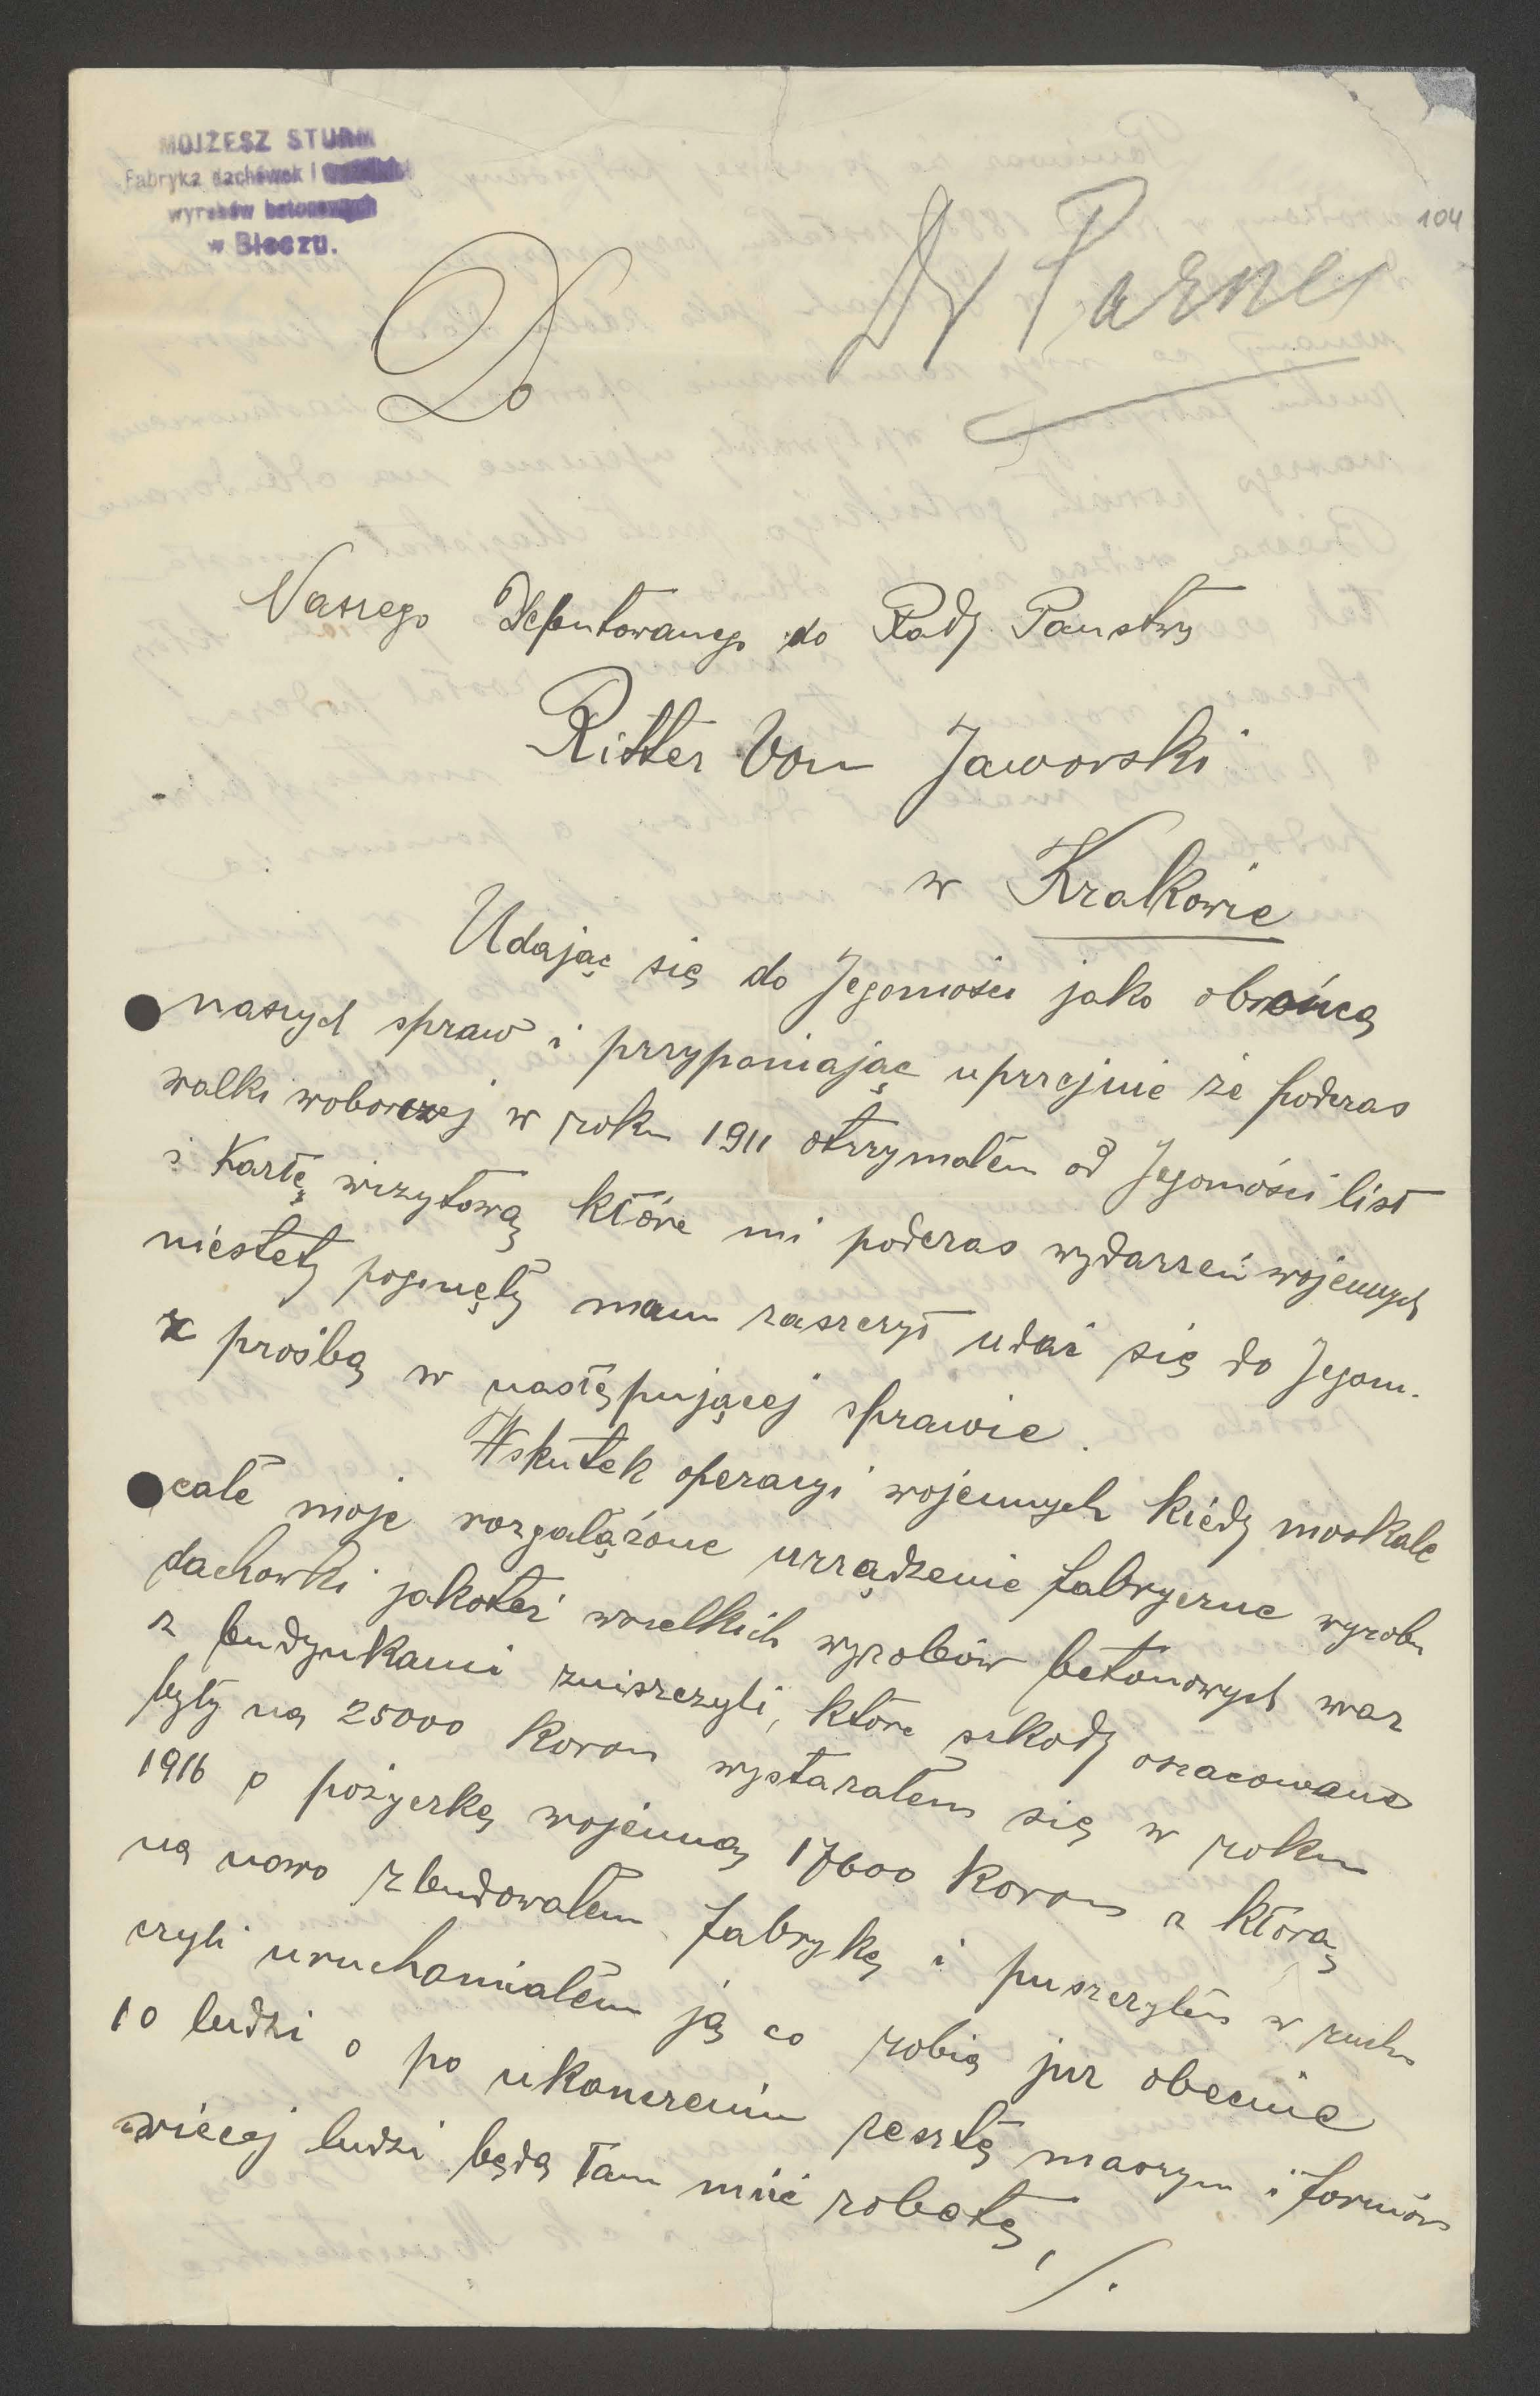 MOJŻESZ STURM
Fabryka dachówek i
wyrobów betonowych
w Bieczu.
104
Dr Parnes
Do
Naszego Deputowanego do Rady Panstwa
Ritter Von Jaworski
w Krakowie
Udając się do Jegomości jako obrońcą
naszych spraw i przypomiając uprzejmie że podczas
walki woborczej w roku 1911 otrzymałem od Jegomości list
i Kartę wizytową które mi podczas wydarzeń wojennych
niestety poginęły mam zaszczyt udać się do Jegom.
z prośbą w następującej sprawie.
Wskutek operacyi wojennych kiedy moskale
całe moje rozgałążone urządzenie fabryczne wyrobu
dachowki jakoteż wszelkich wyrobów betonowych wraz
z budynkami zniszczyli, które szkody oszacowane
były na 25000 Koron wystarałem się w roku
1916 o pożyczkę wojenną 17600 Koron z którą
na nowo zbudowałem fabrykę i puszczyłem w ruch
czyli uruchamiałem ją co robią już obecnie
10 ludzi a po ukonczeniu resztę maszyn i formów
więcej ludzi będą tam mieć robotę,
./.